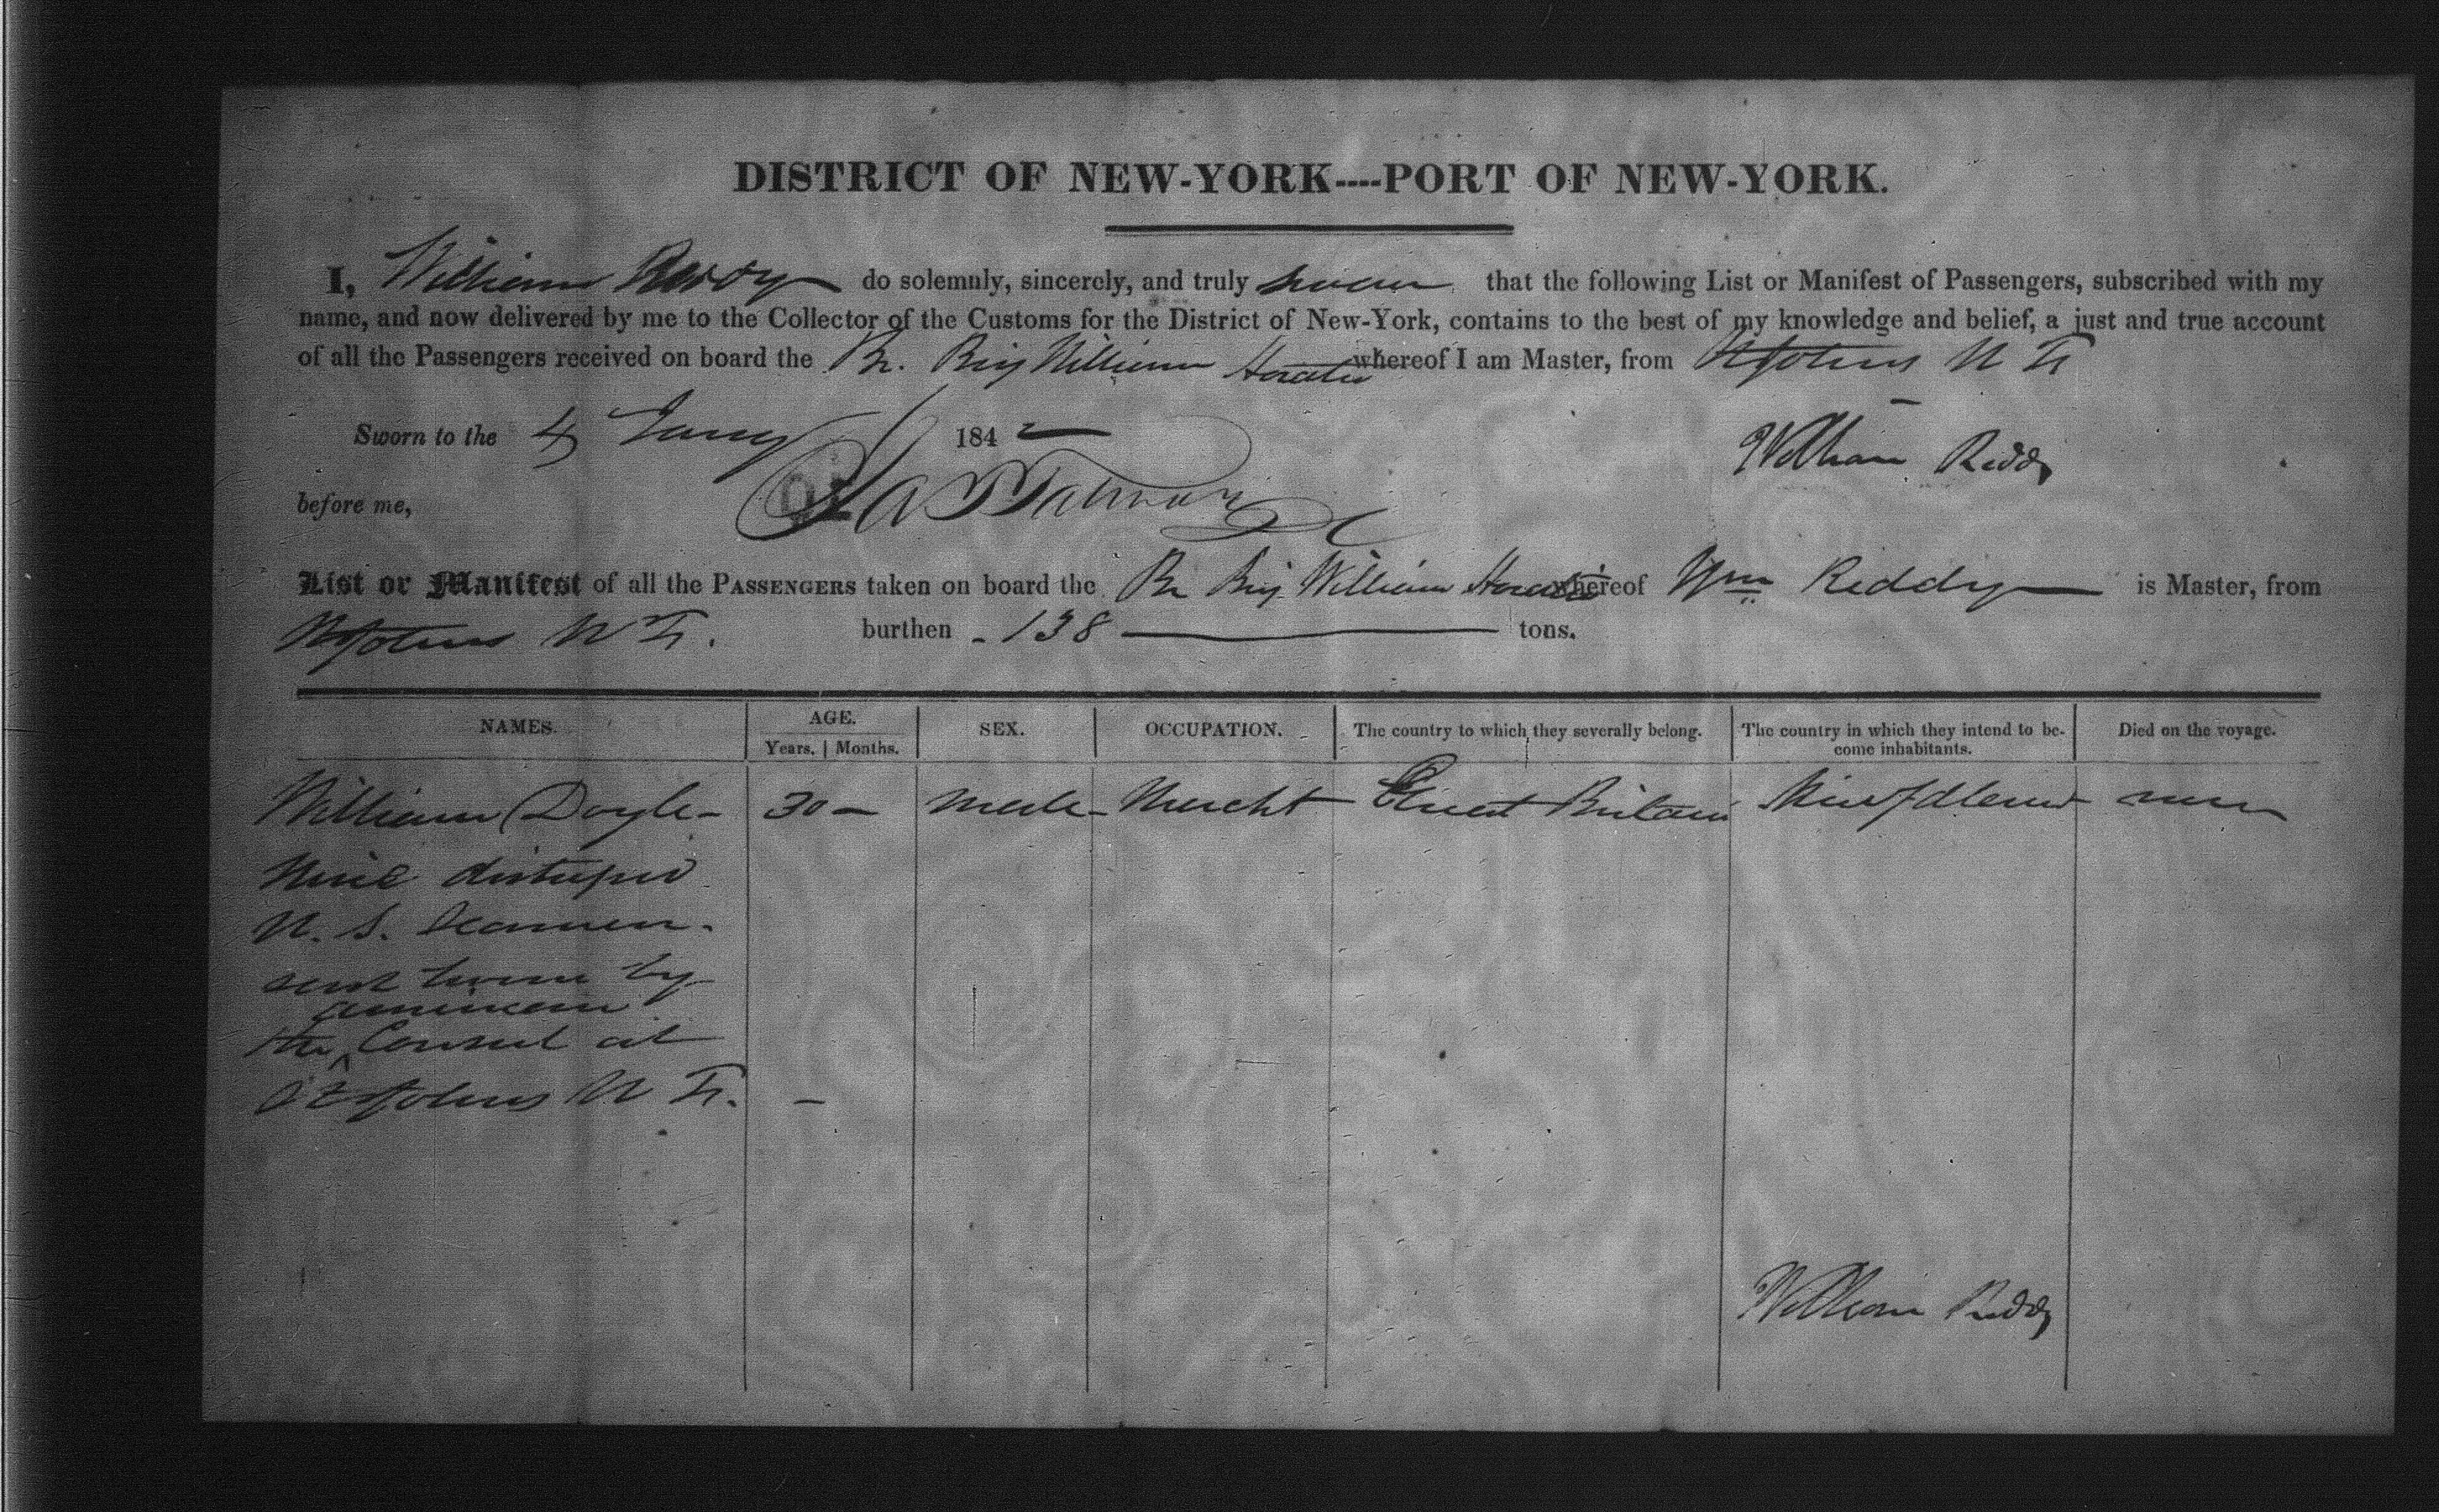 DISTRICT OF NEW-YORK----PORT OF NEW-YORK.
I, William Reddy do solemnly, sincerely, and truly swear that the following List or Manifest of Passengers, subscribed with my
name, and now delivered by me to the Collector of the Customs for the District of New-York, contains to the best of my knowledge and belief, a just and true account
of all the Passengers received on board the Br. Brig William Horatio whereof I am Master, from St Johns N F
Sworn to the 4 Jany 1842
William Reddy
before me,
List or Manifest of all the PASSENGERS taken on board the Br Brig William Horatio whereof Wm Reddy is Master, from
St Johns N F. burthen - 138 tons.
NAMES. AGE. SEX. OCCUPATION. The country to which they severally belong. The country in which they intend to be- Died on the voyage.
Years. | Months. come inhabitants.
William Doyle - 30 - male - Mercht Great Britain Newfdland none
Nine
U. S. Seamen.
sent home by
american
the ^ Consul at
St Johns N F. -
William Reddy